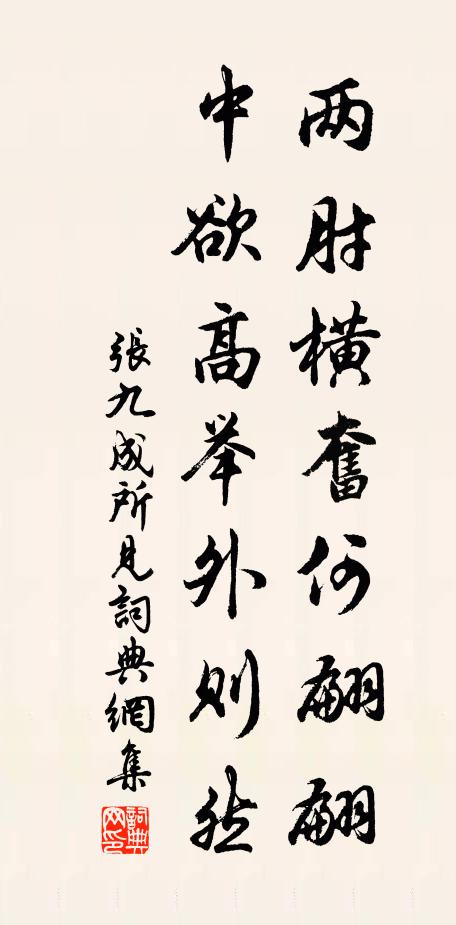 两肘橫奮何翩翩
中欲高举外则然
張九成所見詞典網集
詞典
网印